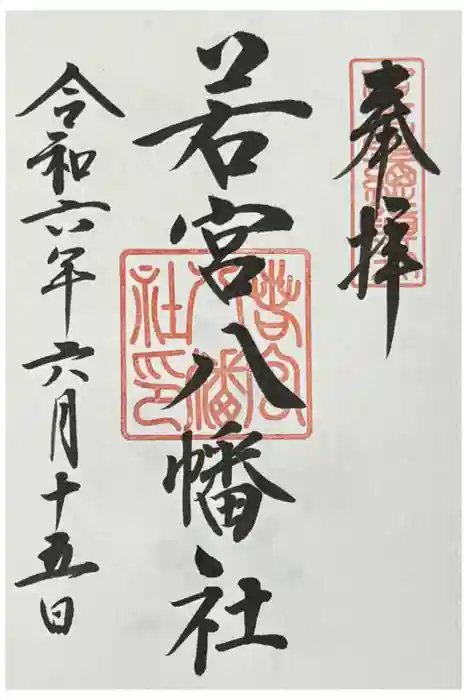 奉拝
若宮八幡社
若宮八幡社印
令和六年六月十五日